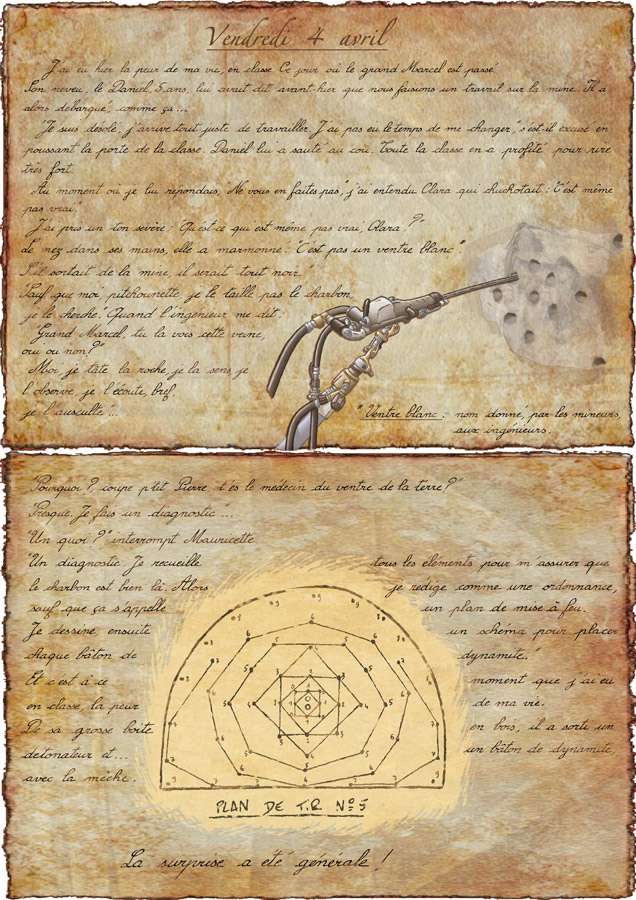 Vendredi 4 avril
J'ai eu hier la peur de ma vie, en classe. Ce jour où le grand Marcel est passé.
Son neveu, le Daniel, 5 ans, lui avait dit avant-hier que nous faisions un travail sur la mine. Il a
alors débarqué, comme ça ...
"Je suis désolé, j'arrive tout juste de travailler. J'ai pas eu le temps de me changer", s'est-il excusé en
poussant la porte de la classe. Daniel lui a sauté au cou. Toute la classe en a profité pour rire
très fort.
Au moment où je lui répondais, "Ne vous en faites pas", j'ai entendu Clara qui chuchotait : "C'est même
pas vrai".
J'ai pris un ton sévère : "Qu'est-ce qui est même pas vrai, Clara ?"
Le nez dans ses mains, elle a marmonné : "C'est pas un ventre blanc*.
S'il sortait de la mine, il serait tout noir."
"Sauf que moi, pitchounette, je le taille pas le charbon,
je le cherche. Quand l'ingénieur me dit :
Grand Marcel, tu la vois cette veine,
oui ou non ?
Moi, je tâte la roche, je la sens, je
l'observe, je l'écoute, bref,
je l'ausculte ...
* Ventre blanc : nom donné, par les mineurs,
aux ingénieurs.
"Pourquoi ?, coupe p'tit Pierre, t'es le médecin du ventre de la terre ?"
"Presque. Je fais un diagnostic" ...
"Un quoi ?" interrompt Mauricette.
"Un diagnostic. Je recueille tous les éléments pour m'assurer que
le charbon est bien là. Alors je rédige comme une ordonnance,
sauf que ça s'appelle un plan de mise à feu.
Je dessine ensuite un schéma pour placer
chaque bâton de dynamite."
Et c'est à ce moment que j'ai eu
en classe, la peur de ma vie.
De sa grosse boîte en bois, il a sorti un
détonateur et... un bâton de dynamite,
avec la mèche.
PLAN DE T.R N°5
La surprise a été générale !